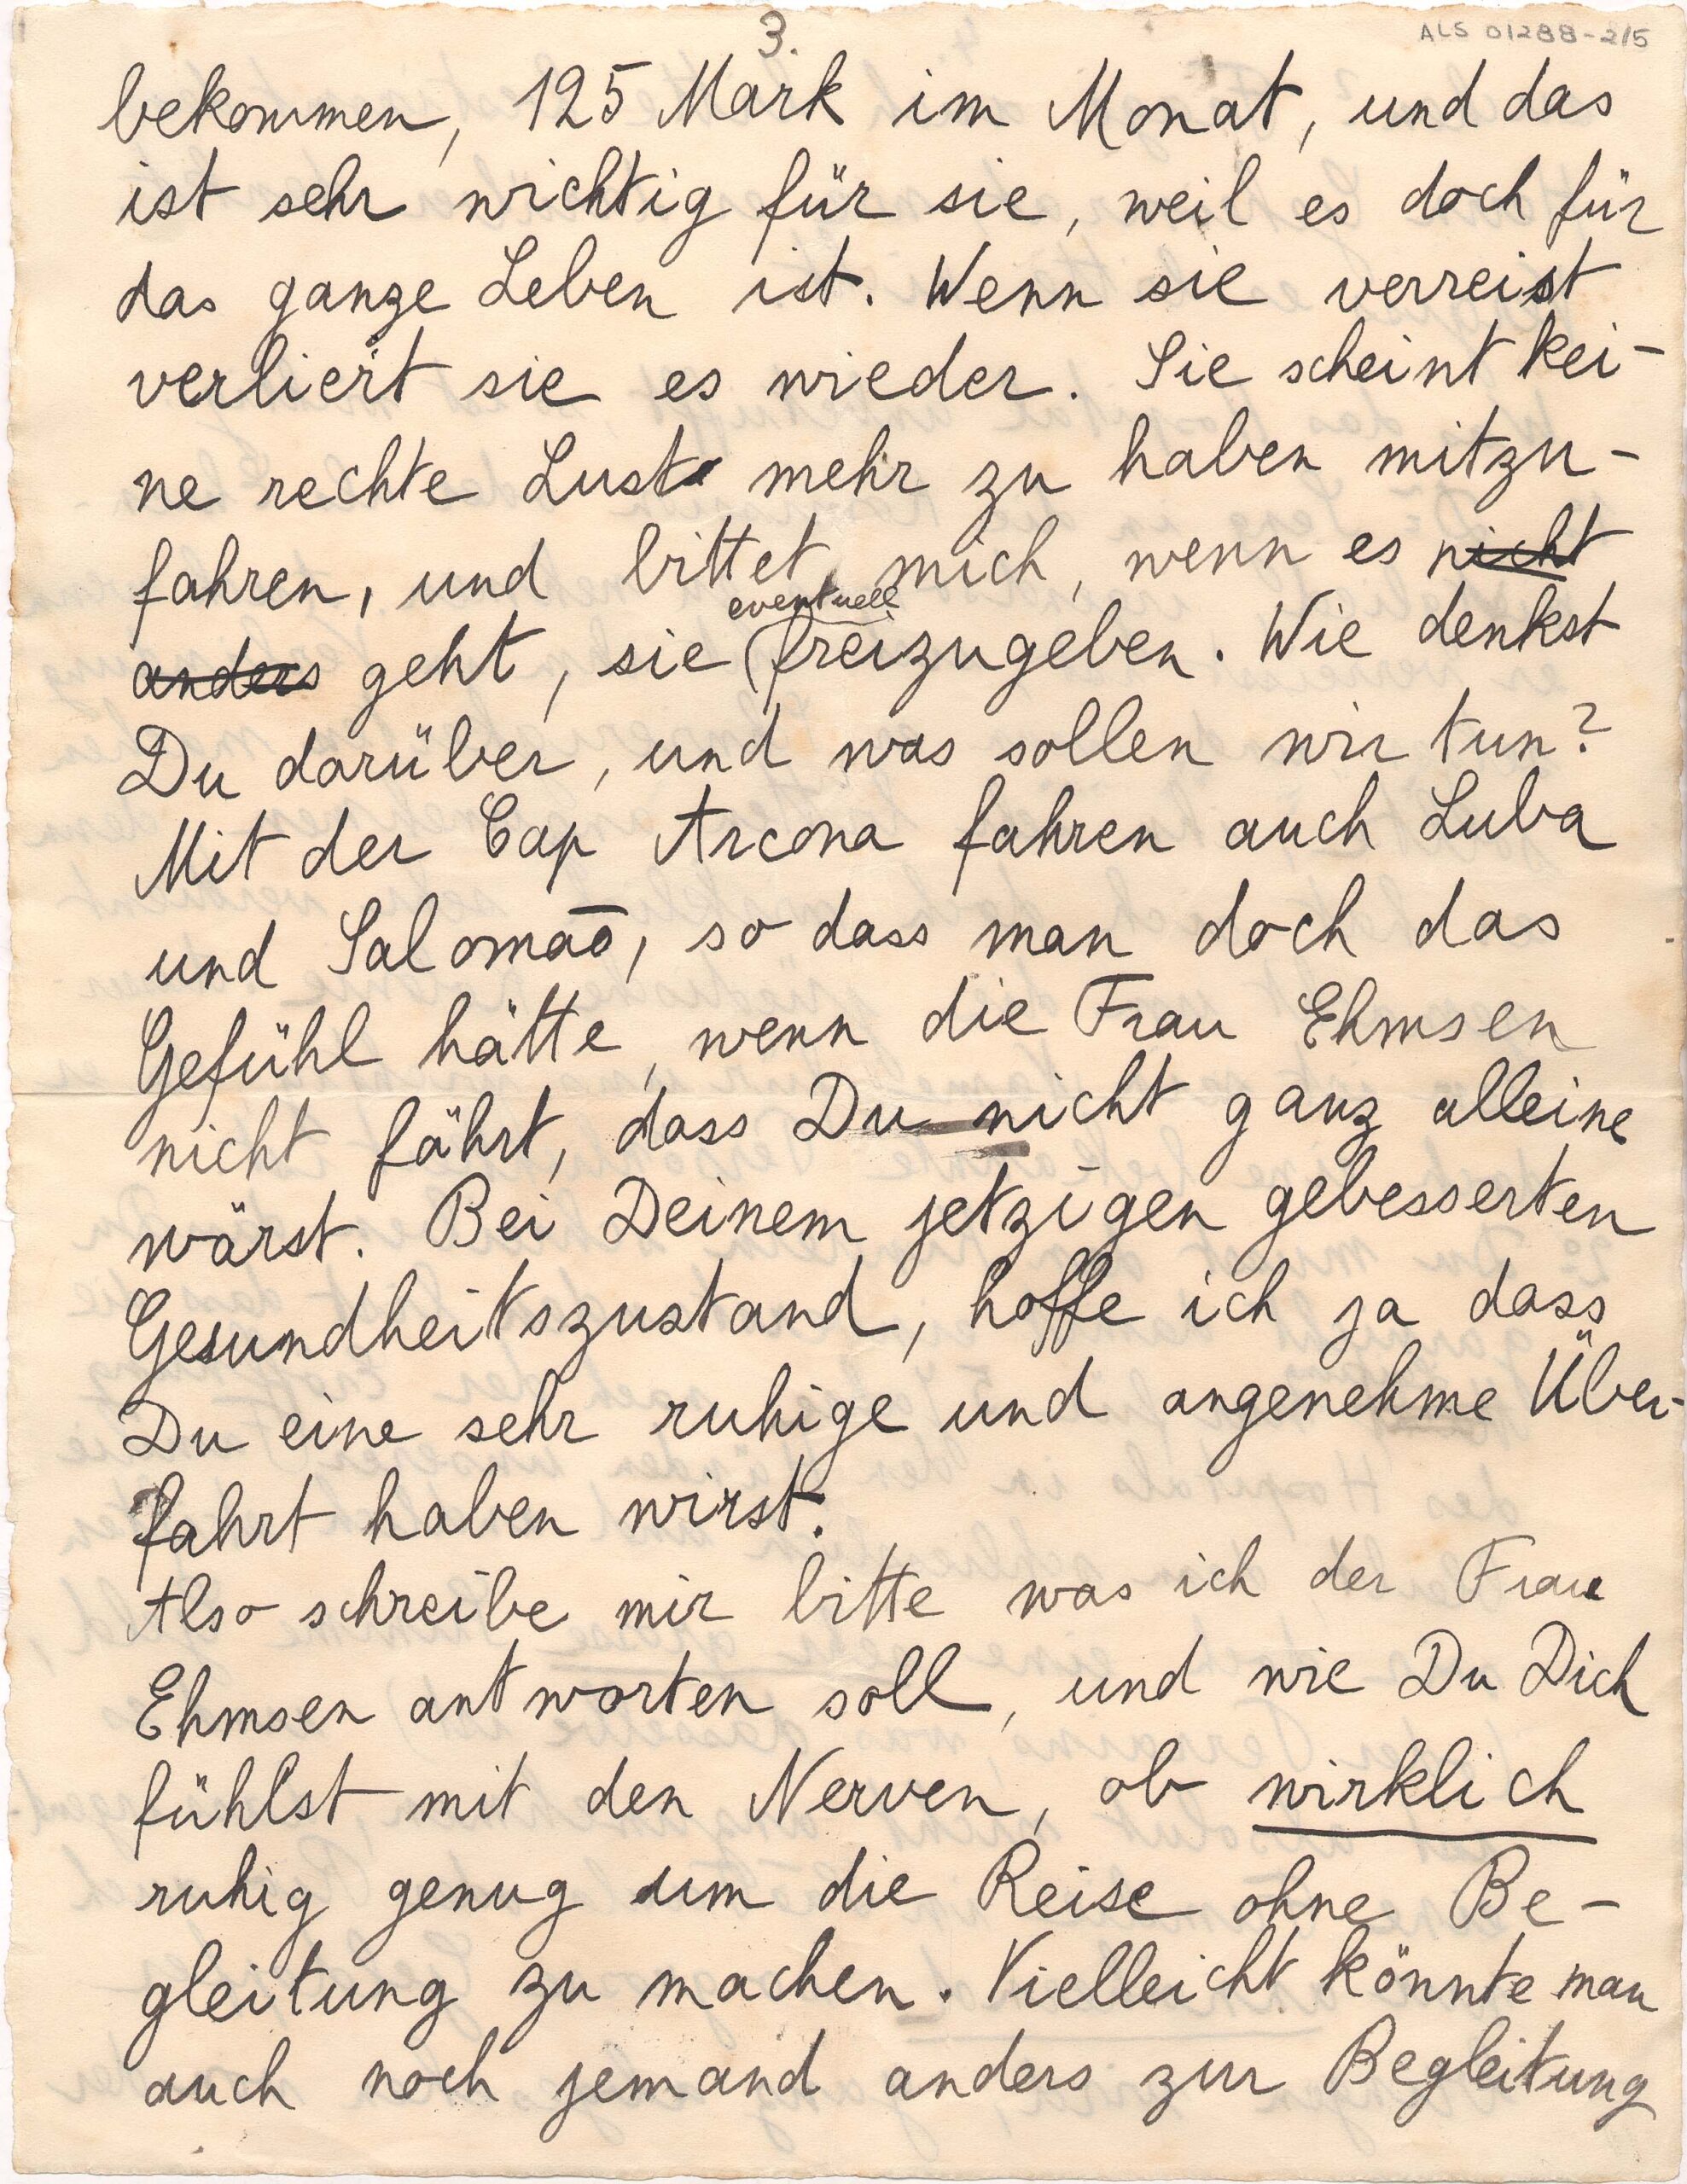 3.
ALS 01288-2/5
bekommen, 125 Mark im Monat, und das
ist sehr wichtig für sie, weil es doch für
das ganze Leben ist. Wenn sie verreist
verliert sie es wieder. Sie scheint kei-
ne rechte Lust mehr zu haben mitzu-
fahren, und bittet mich, wenn es nicht
eventuell
anders geht, sie freizugeben. Wie denkst
Du darüber, und was sollen wir tun?
Mit der Cap Arcona fahren auch Luba
und Salomaō, so dass man doch das
Gefühl hätte, wenn die Frau Ehmsen
nicht fährt, dass Du nicht ganz alleine
wärst. Bei Deinem jetzigen gebesserten
Gesundheitszustand, hoffe ich ja dass
Du eine sehr ruhige und angenehme Über-
fahrt haben wirst.
Also schreibe mir bitte was ich der Frau
Ehmsen antworten soll, und wie Du Dich
fühlst mit den Nerven, ob wirklich
ruhig genug um die Reise ohne Be-
gleitung zu machen. Vielleicht könnte man
auch noch jemand anders zur Begleitung